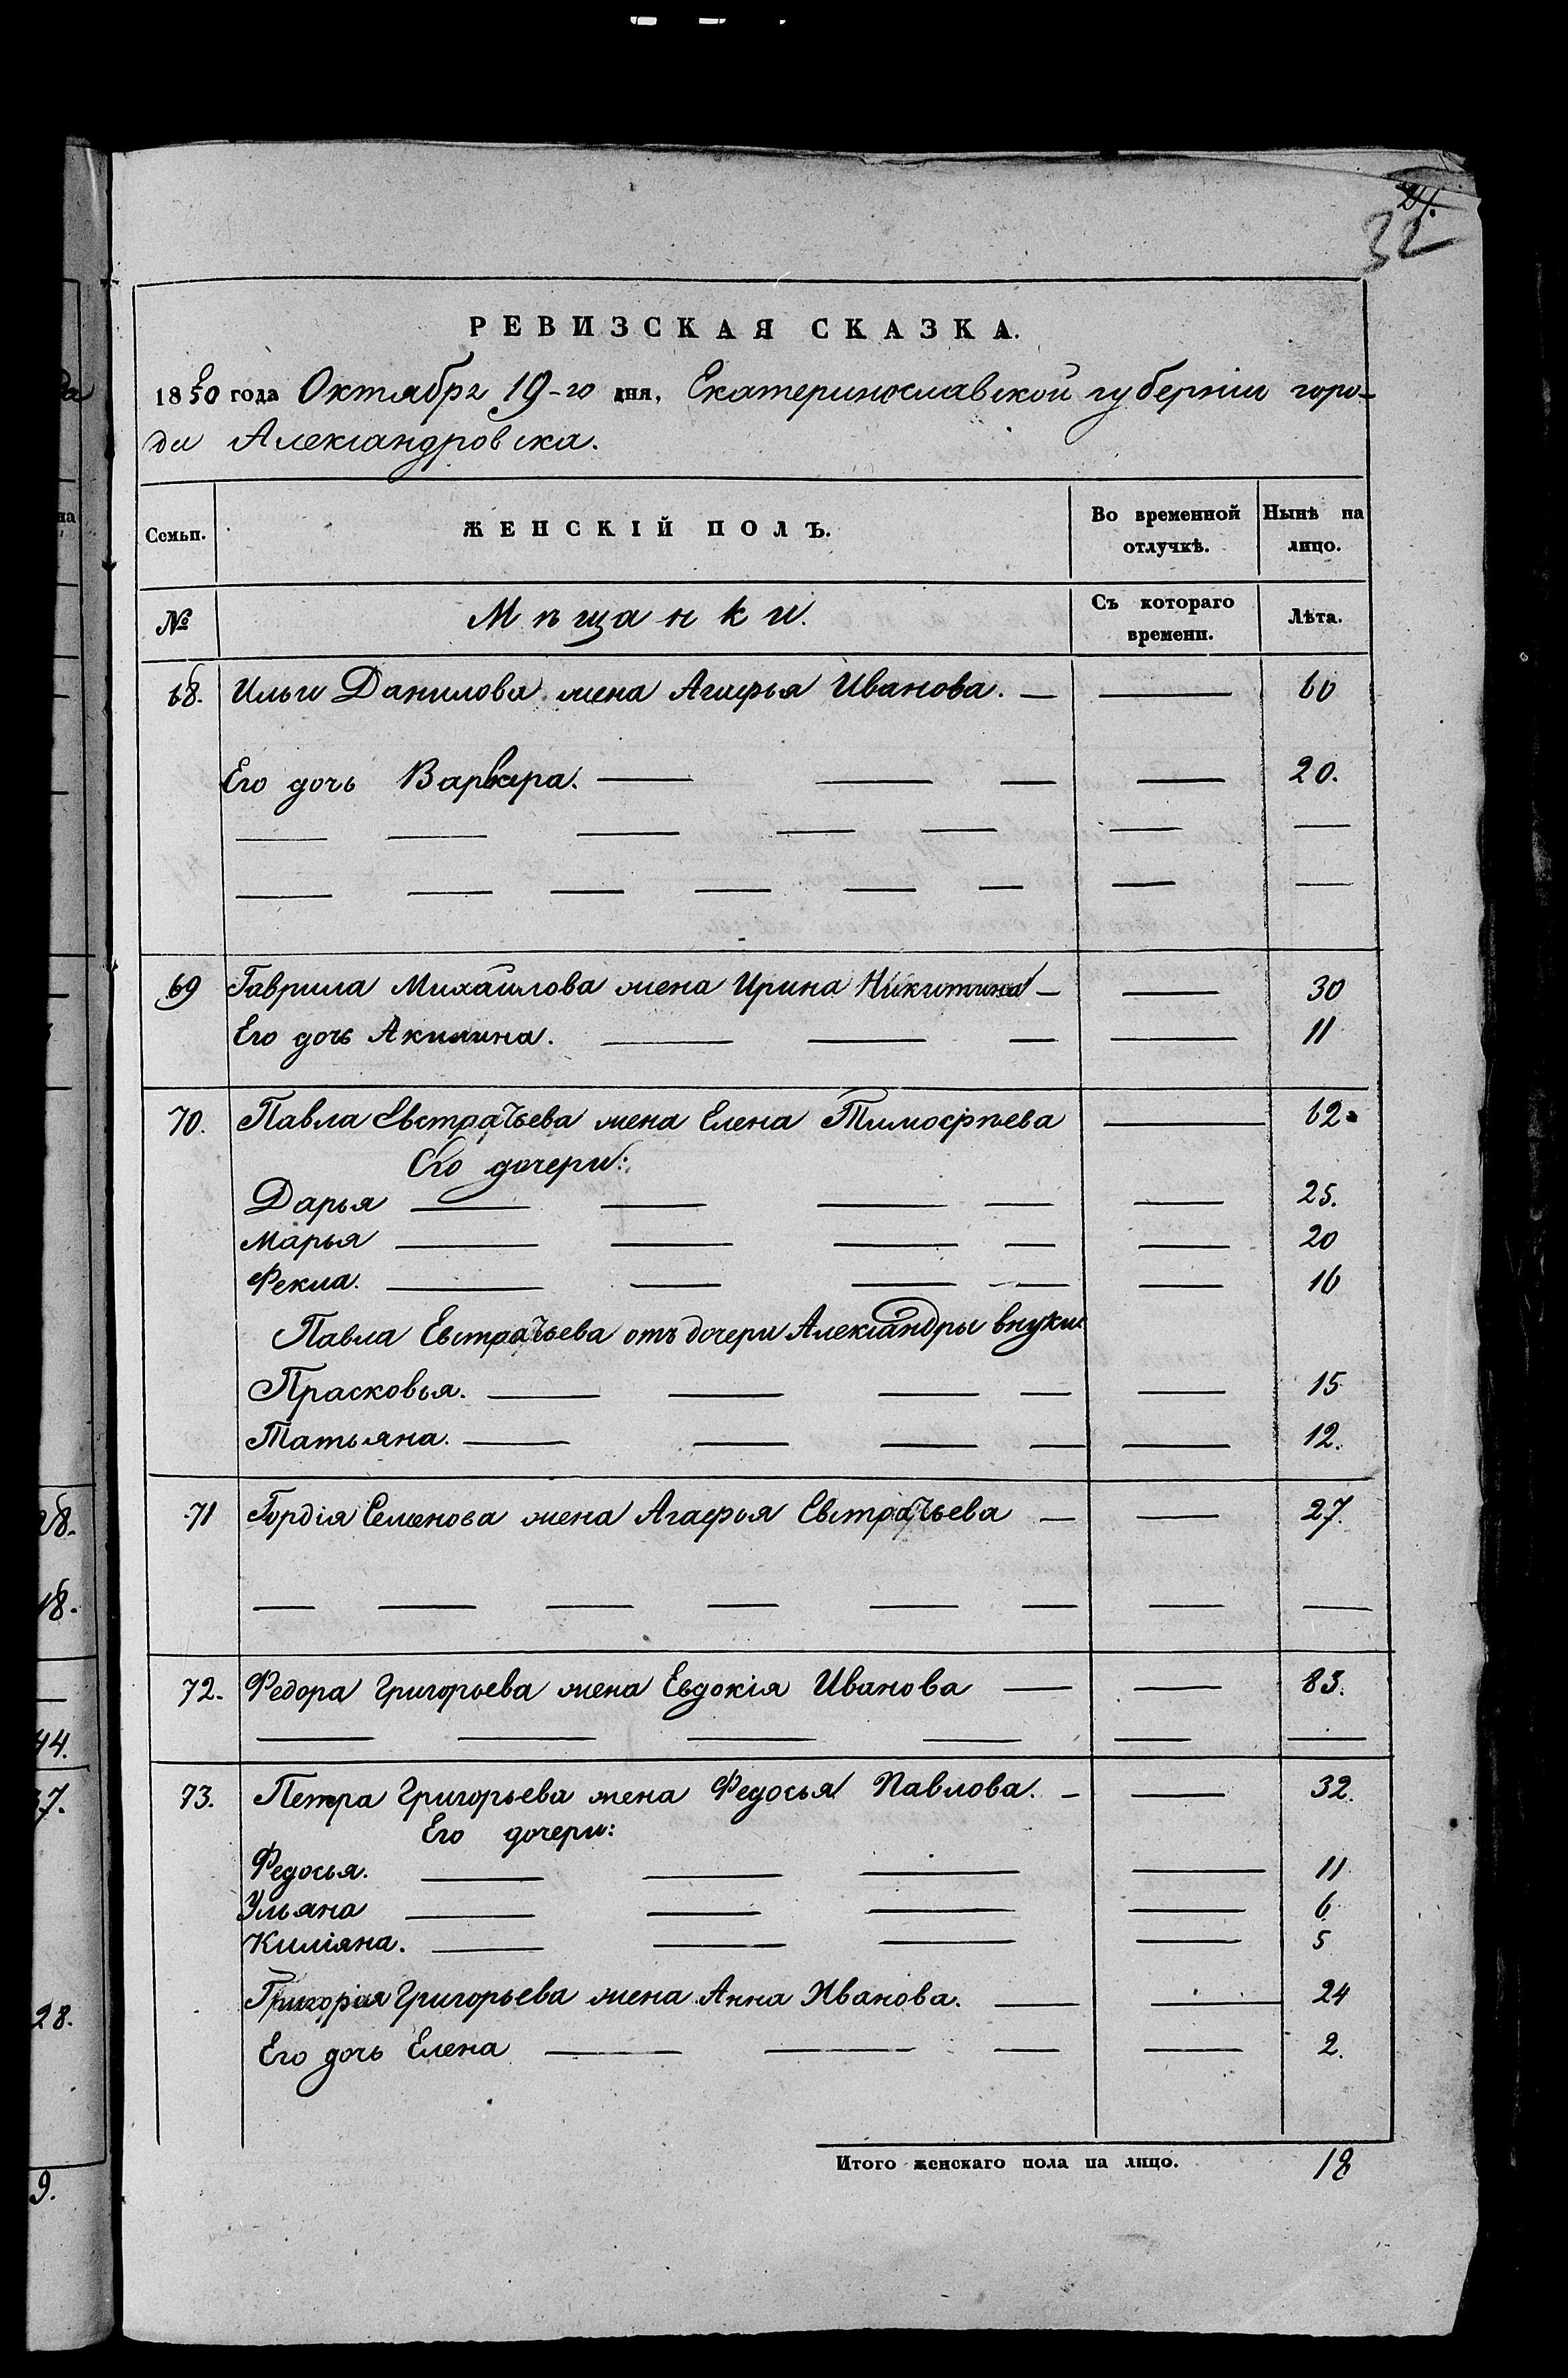 24.
32
РЕВИЗСКАЯ СКАЗКА.
1850 года Октября 19-го дня, Екатеринославской губерніи горо-
да Александровска.
Семьи. ЖЕНСКІЙ ПОЛЪ. Во временной отлучкѣ. Нынѣ на лицо.
№ Мѣщанки. Съ котораго времени. Лѣта.
68. Ильи Данилова жена Агафья Иванова. — — 60
Его дочь Варвара. — — — — 20.
— — — — — — —
— — — — — — — —
69 Гаврила Михайлова жена Ирина Никитина — — 30
Его дочь Акилина. — — — — 11
70. Павла Евстратьева жена Елена Тимофѣева — 62
Его дочери:
Дарья — — — — — 25.
Марья — — — — — 20
Фекла. — — — — — 16
Павла Евстратьева отъ дочери Александры внуки
Прасковья. — — — — — 15
Татьяна. — — — — — 12.
71 Гордія Семенова жена Агафья Евстратьева — — 27.
— — — — — — — —
72. Федора Григорьева жена Евдокія Иванова — — 83.
— — — — — —
73. Петра Григорьева жена Федосья Павлова. — — 32.
Его дочери:
Федосья. — — — — 11
Ульяна — — — — 6
Киліяна. — — — — 5
Григорія Григорьева жена Анна Иванова. — — 24
Его дочь Елена — — — — 2.
Итого женскаго пола на лицо. 18
28.
18.
44.
37.
28.
9.